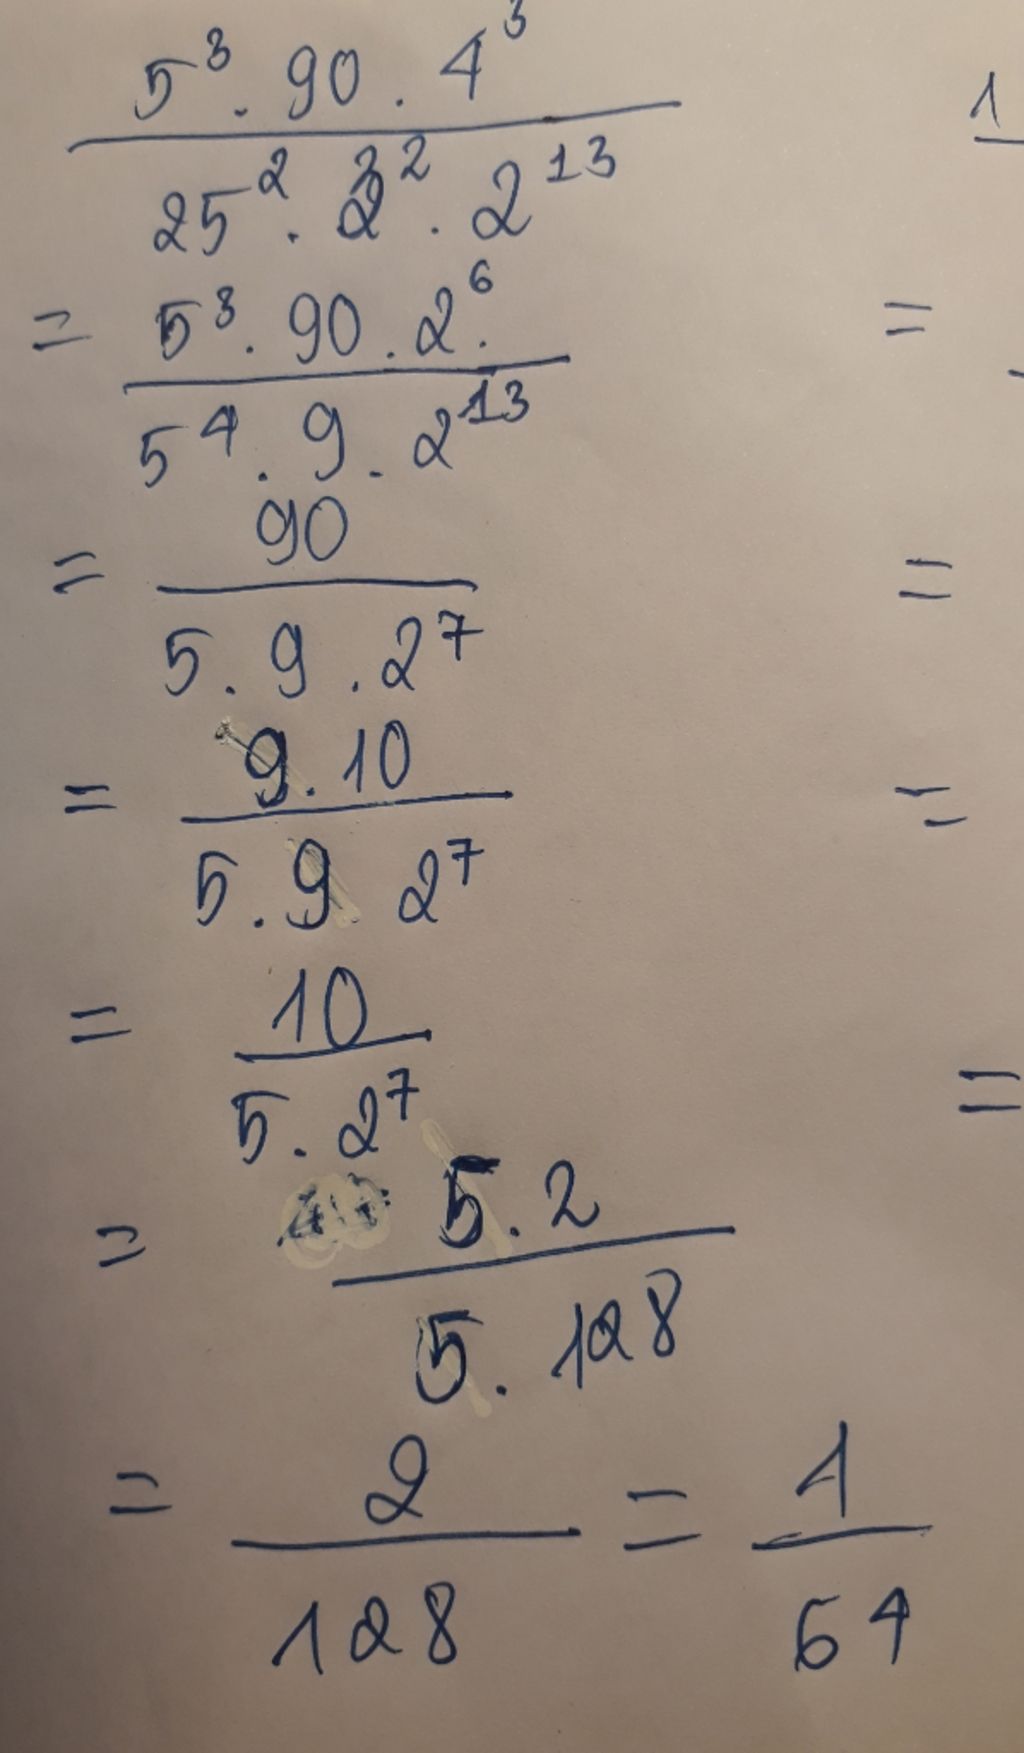 5³ . 90 . 4³
25² . 3² . 2¹³
= 5³ . 90 . 2⁶ .
5⁴ . 9 . 2¹³
= 90
5 . 9 . 2⁷
= 9 . 10
5 . 9 2⁷
= 10
5 . 2⁷
= 5 . 2
5 . 128
= 2
128
= 1
64
1
=
=
=
=